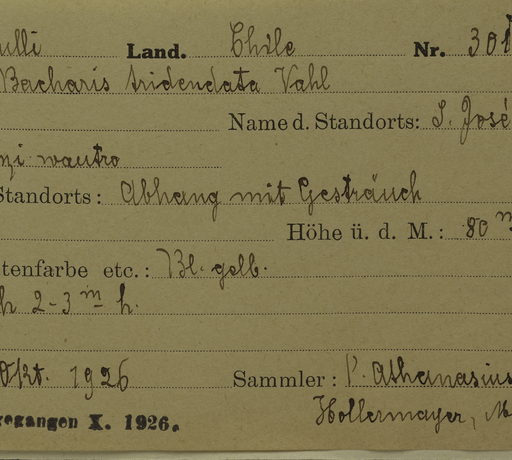 ulli Land. Chile Nr. 301
Bacharis tridendata Vahl
Name d. Standorts: S. José
Standorts: Abhang mit Gesträuch
Höhe ü. d. M.: 80 m
tenfarbe etc.: Bl. gelb.
h 2-3 m h.
Okt. 1926 Sammler: P. Athanasius
egangen X. 1926. Hollermayer, M